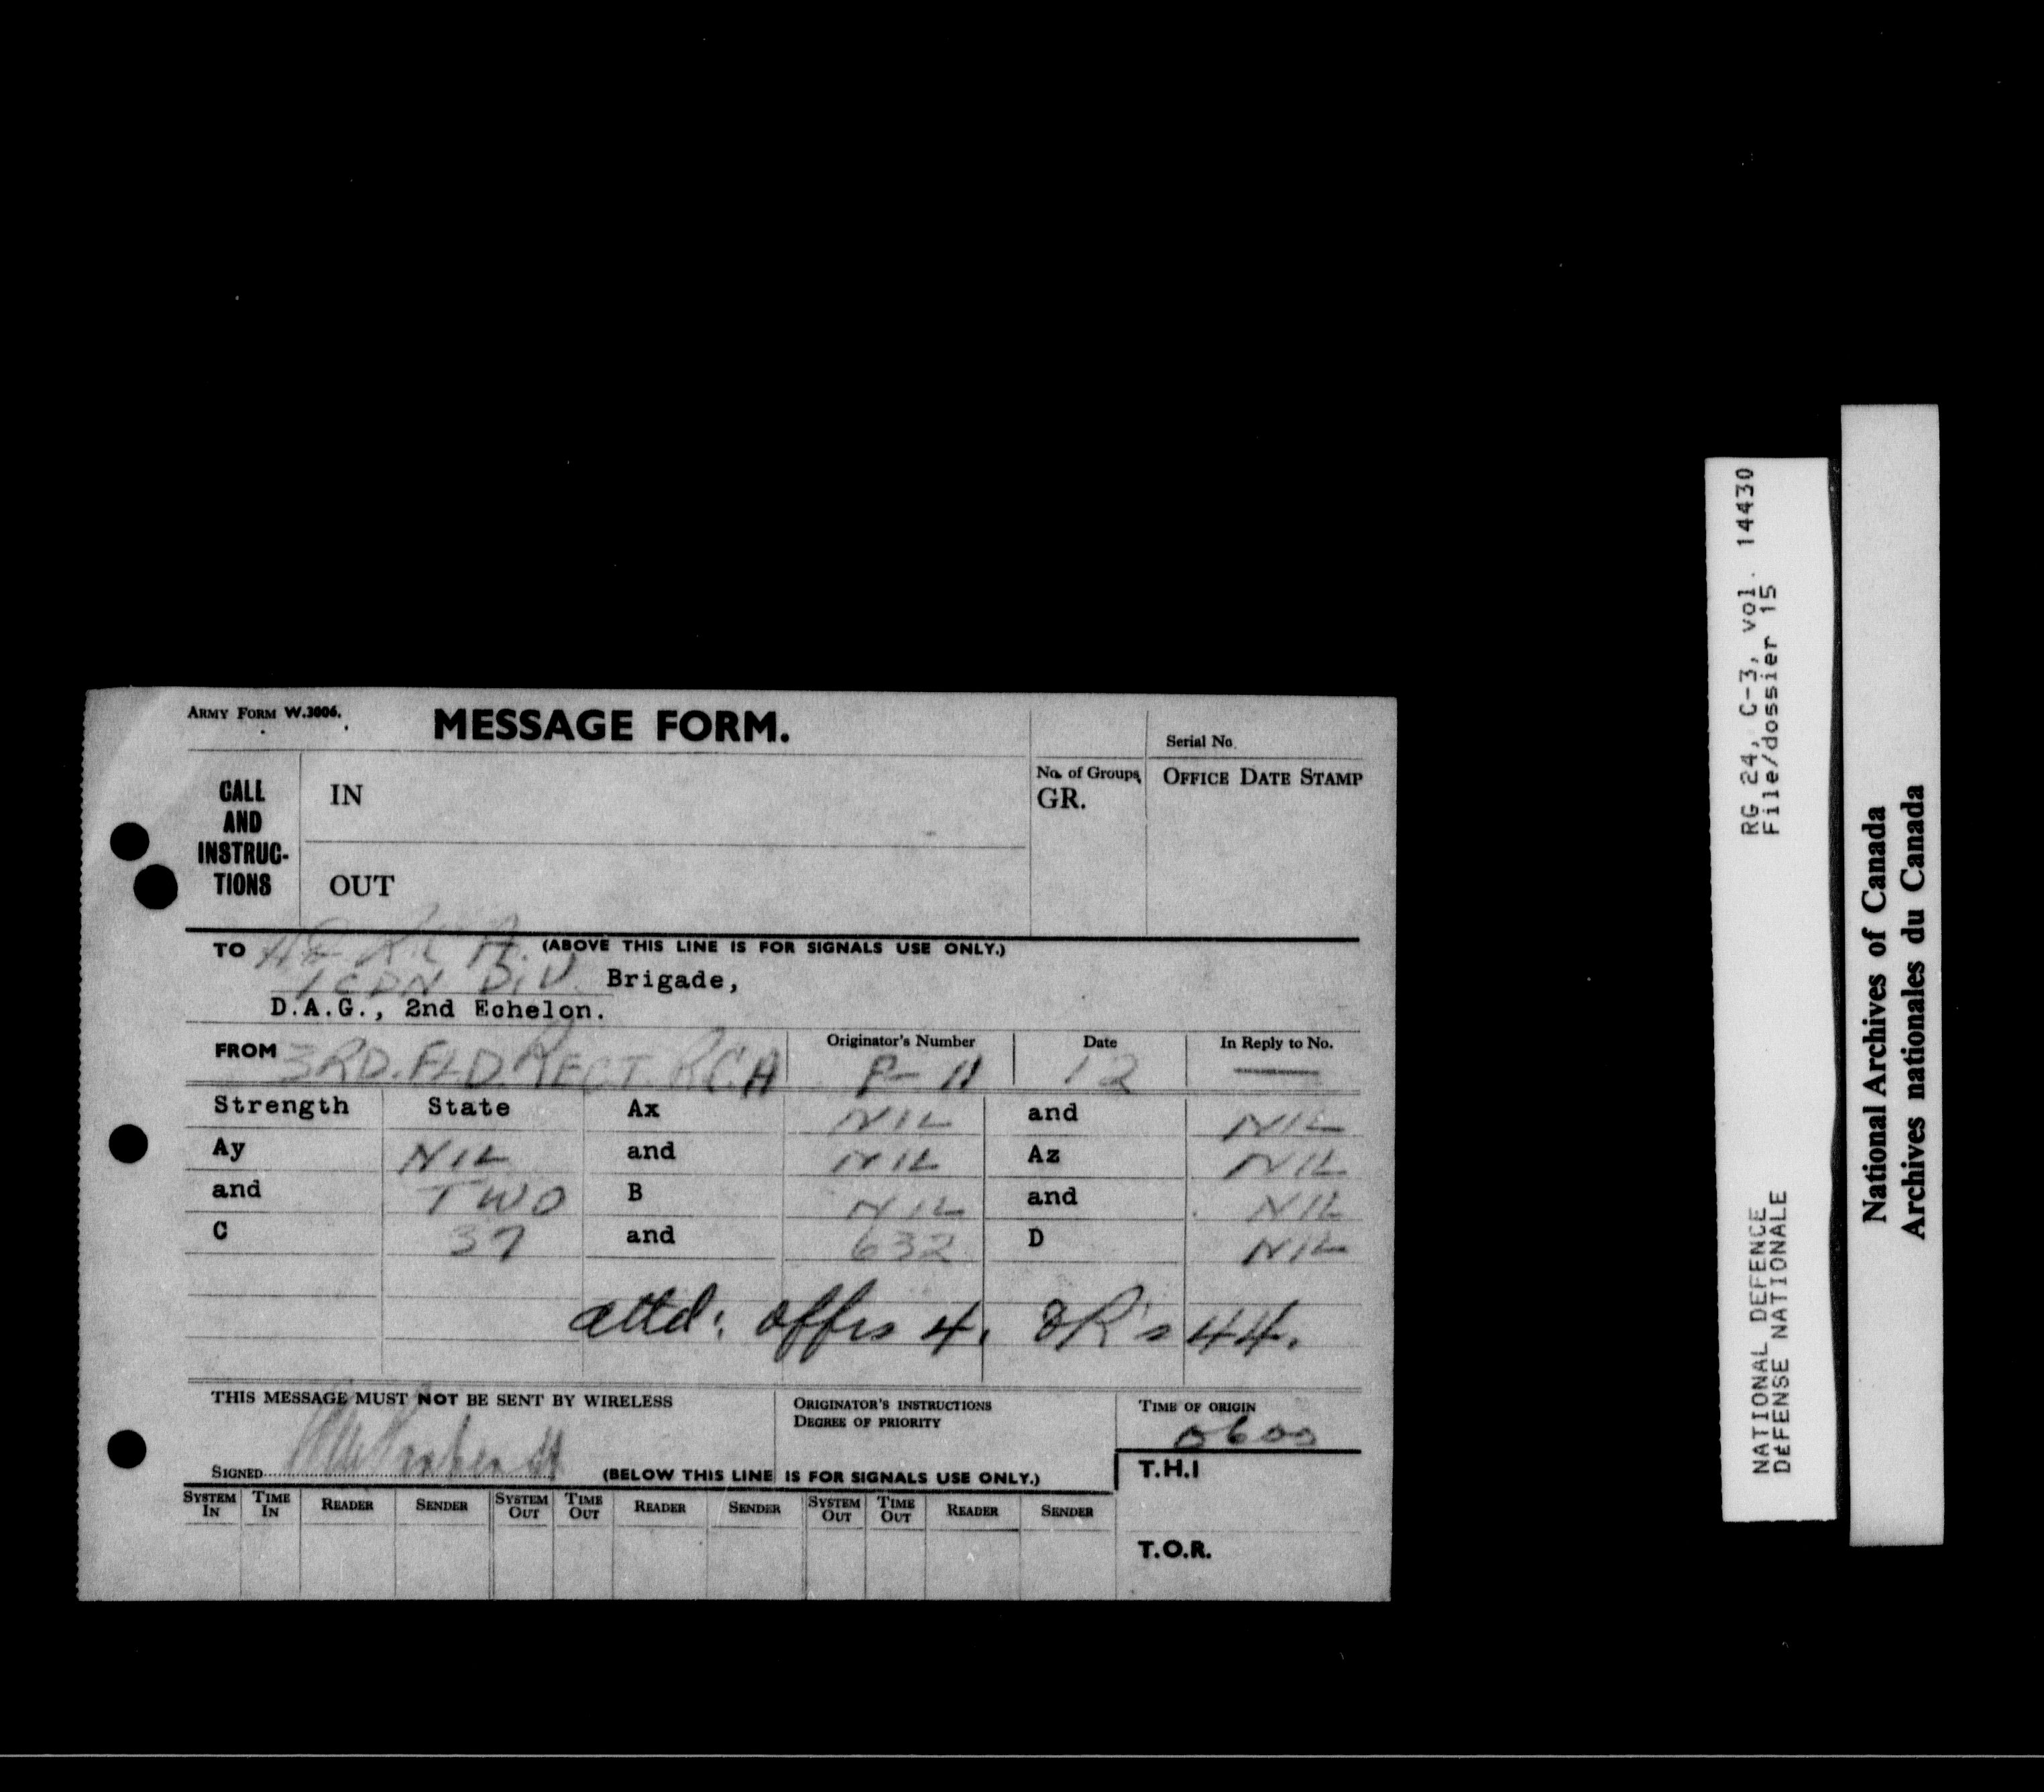 ARMY FORM W.3006.
MESSAGE FORM.
Serial No.
CALL AND INSTRUC- TIONS
IN
No. of Groups,
GR.
OFFICE DATE STAMP
OUT
TO (ABOVE THIS LINE IS FOR SIGNALS USE ONLY.)
1 CDN DIV. Brigade,
D.A.G., 2nd Echelon.
FROM 3RD. FLD. REGT. RCA
Originator's Number P-11
Date 12
In Reply to No. —
Strength State Ax NIL and NIL
Ay NIL and NIL Az NIL
and TWO B NIL and NIL
C 37 and 632 D NIL
attd: offrs 4. OR's 44.
THIS MESSAGE MUST NOT BE SENT BY WIRELESS
ORIGINATOR'S INSTRUCTIONS
DEGREE OF PRIORITY
TIME OF ORIGIN
0600
SIGNED
(BELOW THIS LINE IS FOR SIGNALS USE ONLY.)
T.H.I
SYSTEM IN TIME IN READER SENDER SYSTEM OUT TIME OUT READER SENDER SYSTEM OUT TIME OUT READER SENDER
T.O.R.
NATIONAL DEFENCE RG 24, C-3, vol. 14430
DÉFENSE NATIONALE File/dossier 15
National Archives of Canada
Archives nationales du Canada